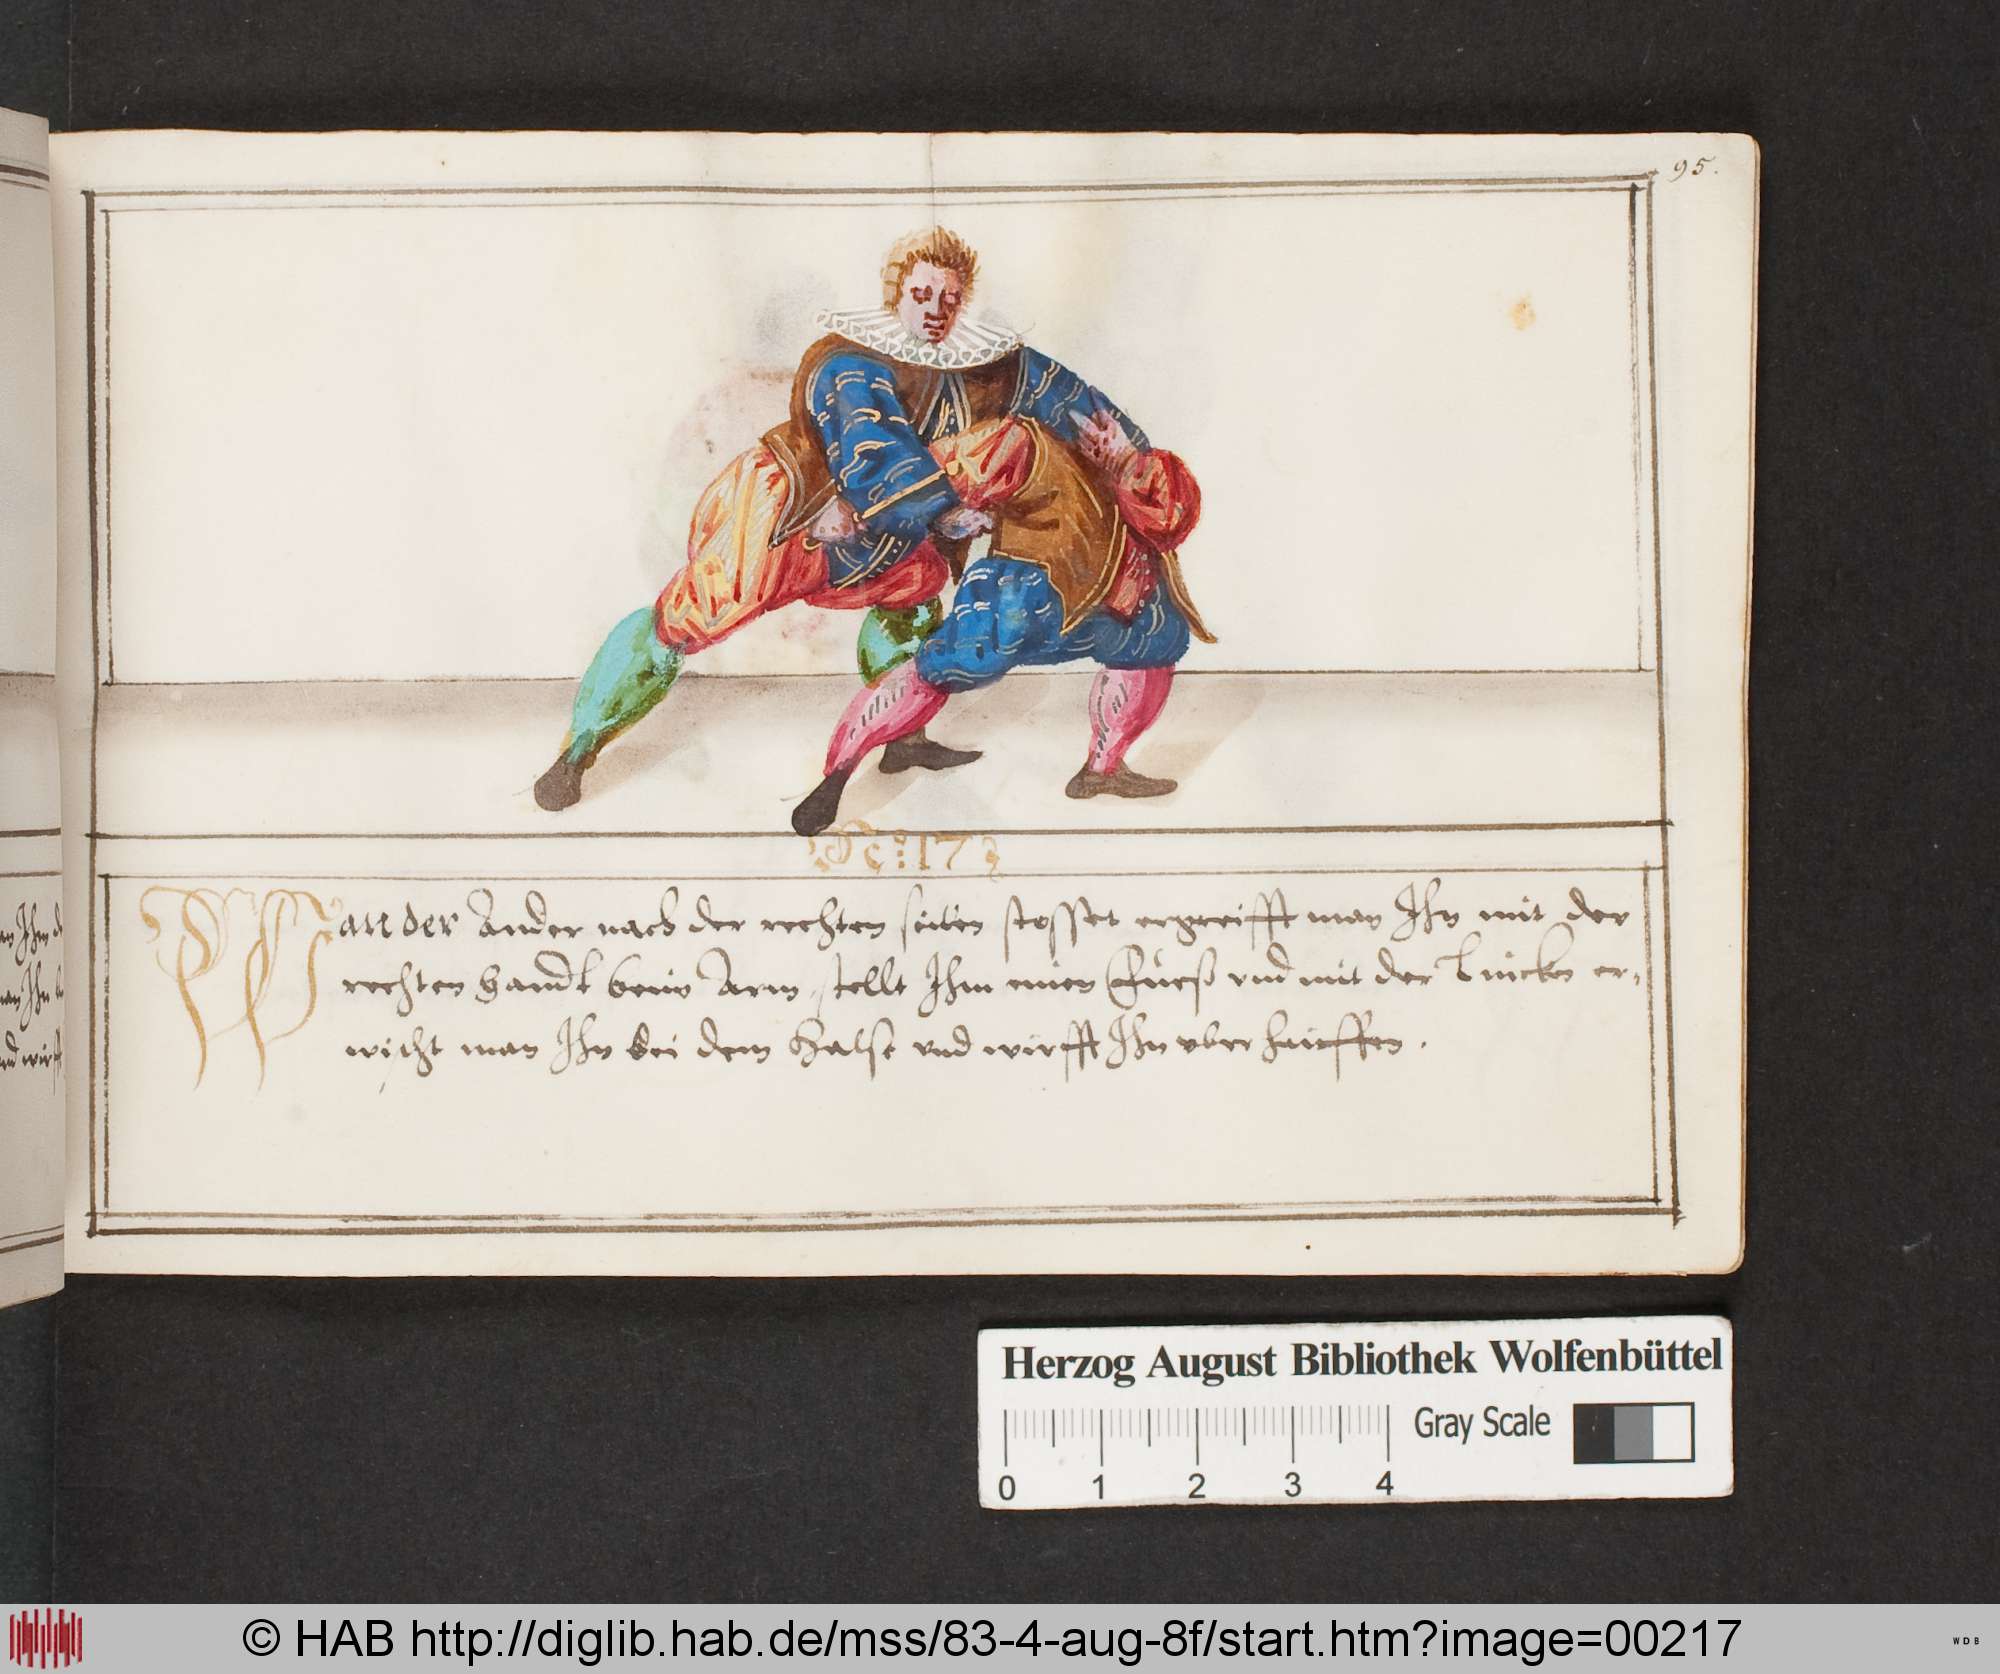 95.
Wan der Ander nach der rechten seiten stosset ergreifft man Ihn mit der
rechten handt beim Arm, stellt Ihm einen Fuess vnd mit der Lincken er-
wischt man Ihn bei dem Halse vnd wirfft Ihn vber hauffen.
Herzog August Bibliothek Wolfenbüttel
Gray Scale
0 1 2 3 4
© HAB http://diglib.hab.de/mss/83-4-aug-8f/start.htm?image=00217
WDB